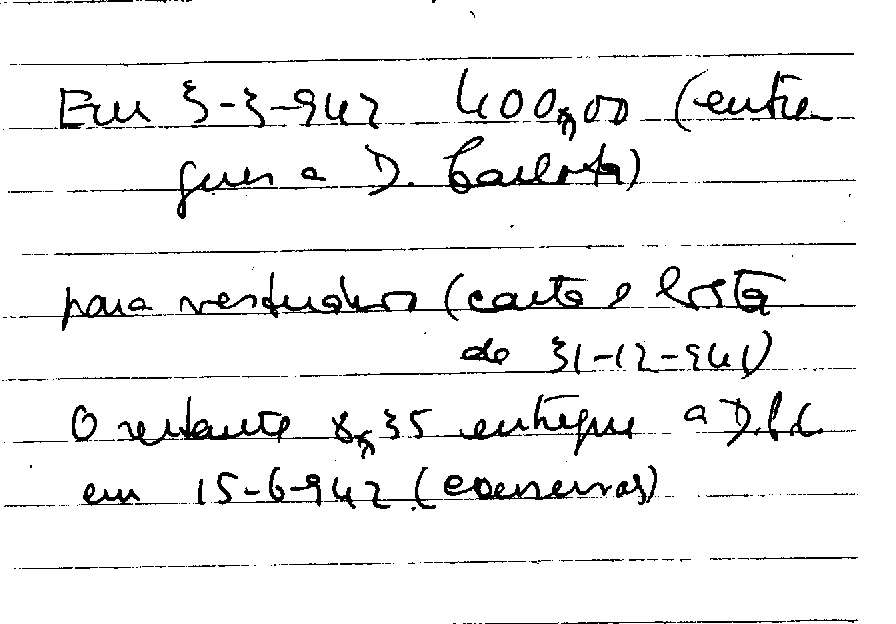 Em 3-3-942 400$00 (entre
gues a D. Carlota)
para vestuários (carta e lista
de 31-12-941)
O restante 8$35 entregue a D.
em 15-6-942